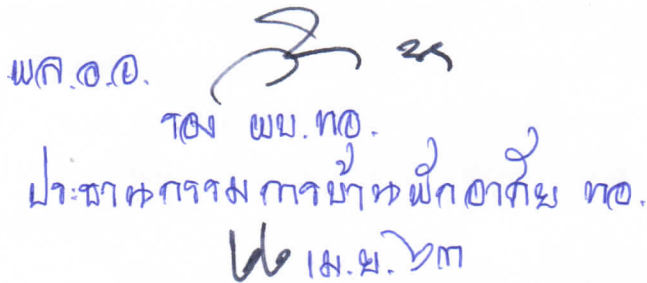 พล.อ.อ.
รอง ผบ.ทอ.
ประธานกรรมการบ้านพักอาศัย ทอ.
๒๒ เม.ย. ๖๓